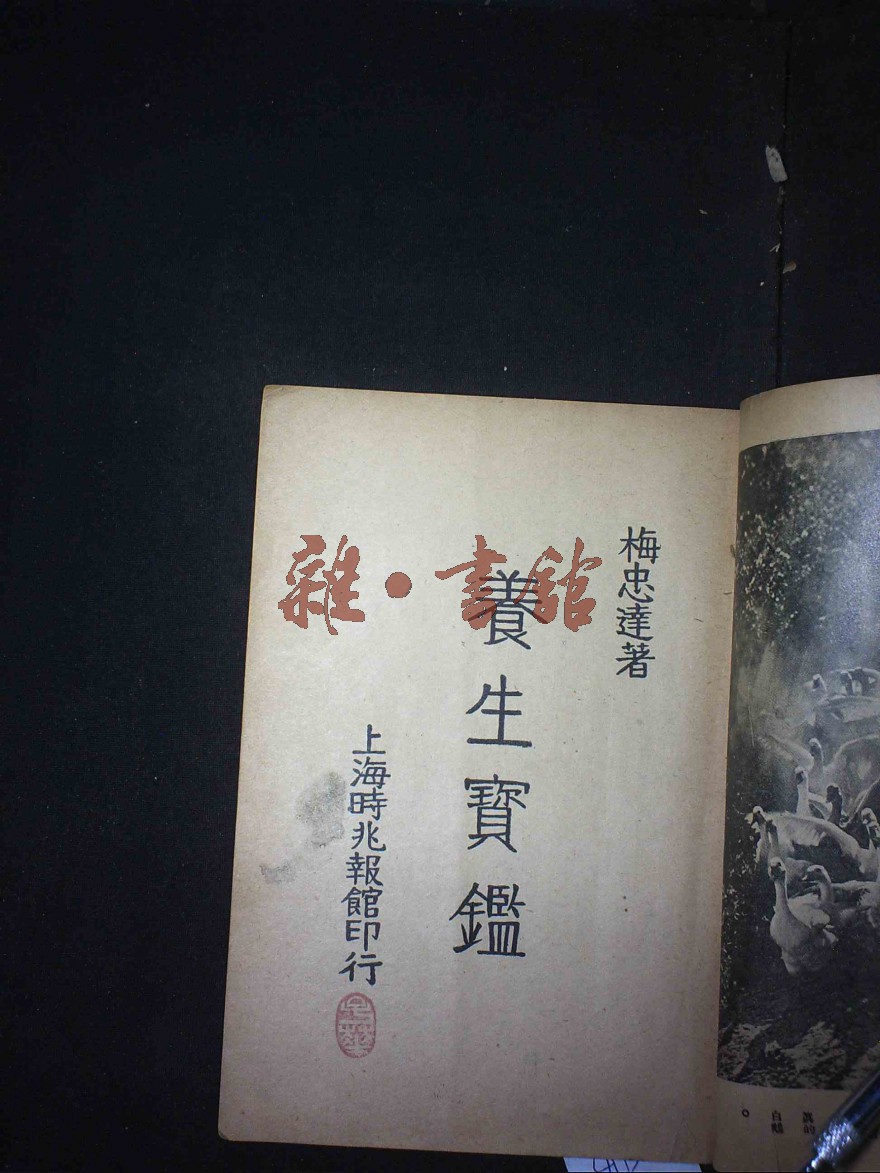 梅忠達著
養生寶鑑
上海時兆報館印行
雜·書館